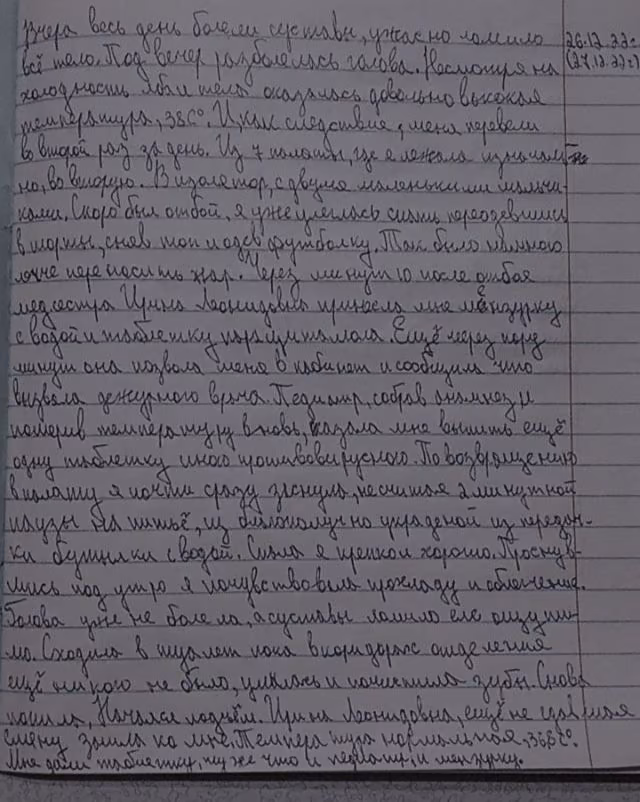 Вчера весь день болели суставы, ужасно ломило
26.12.22г.
всё тело. Под вечер разболелась голова. Несмотря на
(27.12.22г.)
холодность лба и тела оказалась довольно высокая
температура, 38С°. И, как следствие, меня перевели
во второй раз за день. Из 7 палаты, где я лежала изначаль-
но, во вторую. В изолятор, с двумя маленькими мальчи-
ками. Скоро был отбой, я уже улеглась спать переодевшись
в шорты, сняв топ и одев футболку. Так было намного
легче переносить жар. Через минут 10 после отбоя
медсестра Ирина Леонидовна принесла мне мензурку
с водой и таблетку парацитамола. Ещё через пару
минут она позвала меня в кабинет и сообщила что
вызвала дежурного врача. Педиатр, собрав анамнез и
померив температуру вновь, сказала мне выпить ещё
одну таблетку иного противовирусного. По возвращению
в палату я почти сразу заснула, не считая 2 минутной
паузы на питьё, из благополучно украденой из передач-
ки бутылки с водой. Спала я крепко и хорошо. Проснув-
шись под утро я почувствовала прохладу и облегчение.
Голова уже не болела, а суставы ломило еле ощути-
мо. Сходила в туалет пока в коридорах отделения
ещё никого не было, умылась и почистила зубы. Снова
попила. Начался подъём. Ирина Леонидовна, ещё не сдавшая
смену зашла ко мне. Температура нормальная,
Мне дали таблетку, ту же что и педиатр, и мензурку.